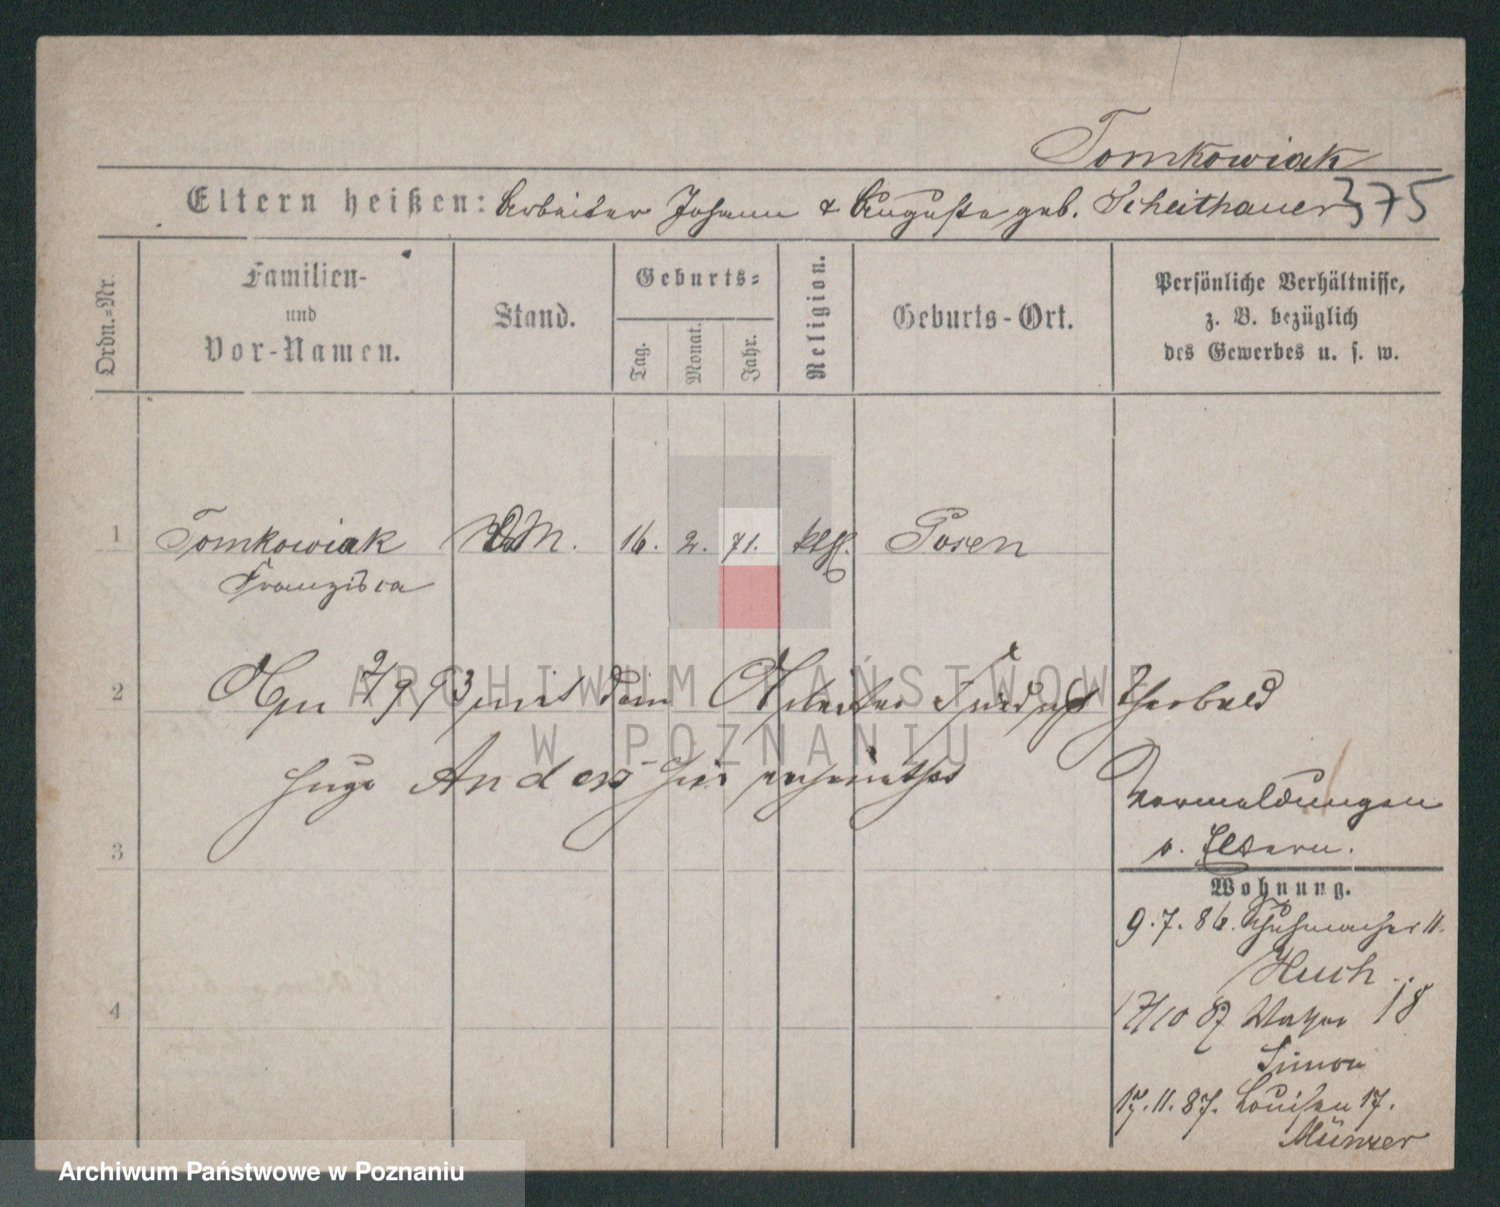 Tomkowiak
Eltern heißen: Arbeiter Johann & Auguste geb. Scheithauer 375
Ordn.-Nr.
Familien-
und
Vor-Namen.
Stand.
Geburts-
Tag.
Monat.
Jahr.
Religion.
Geburts-Ort.
Persönliche Verhältnisse,
z. B. bezüglich
des Gewerbes u. s. w.
1 Tomkowiak 16. 2. 71. kth. Posen
Franziska
2
mit dem Arbeiter
Hugo Anders hier verheirathet
Vermeldungen
3
v. Eltern.
Wohnung.
9.7.86. Schuhmacher 11.
Huch
4
17/10 87 18
Simon
17.11.87. Louisen 17.
Münzer
ARCHIWUM PAŃSTWOWE
W POZNANIU
Archiwum Państwowe w Poznaniu